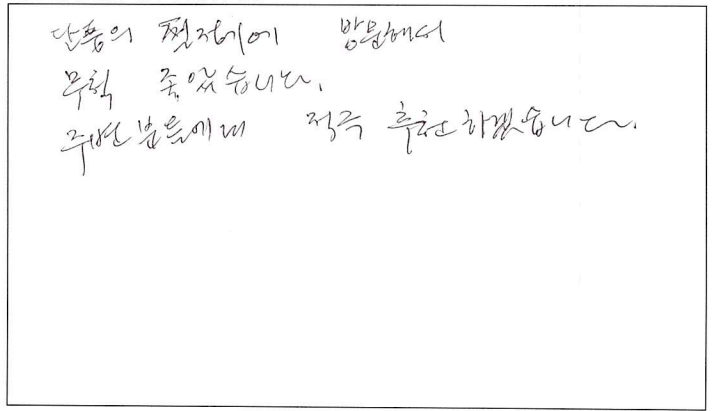 단풍의 찔정에에 방문해서
무척 좋았습니다.
주변분들에대 적극 추천하겠습니다.